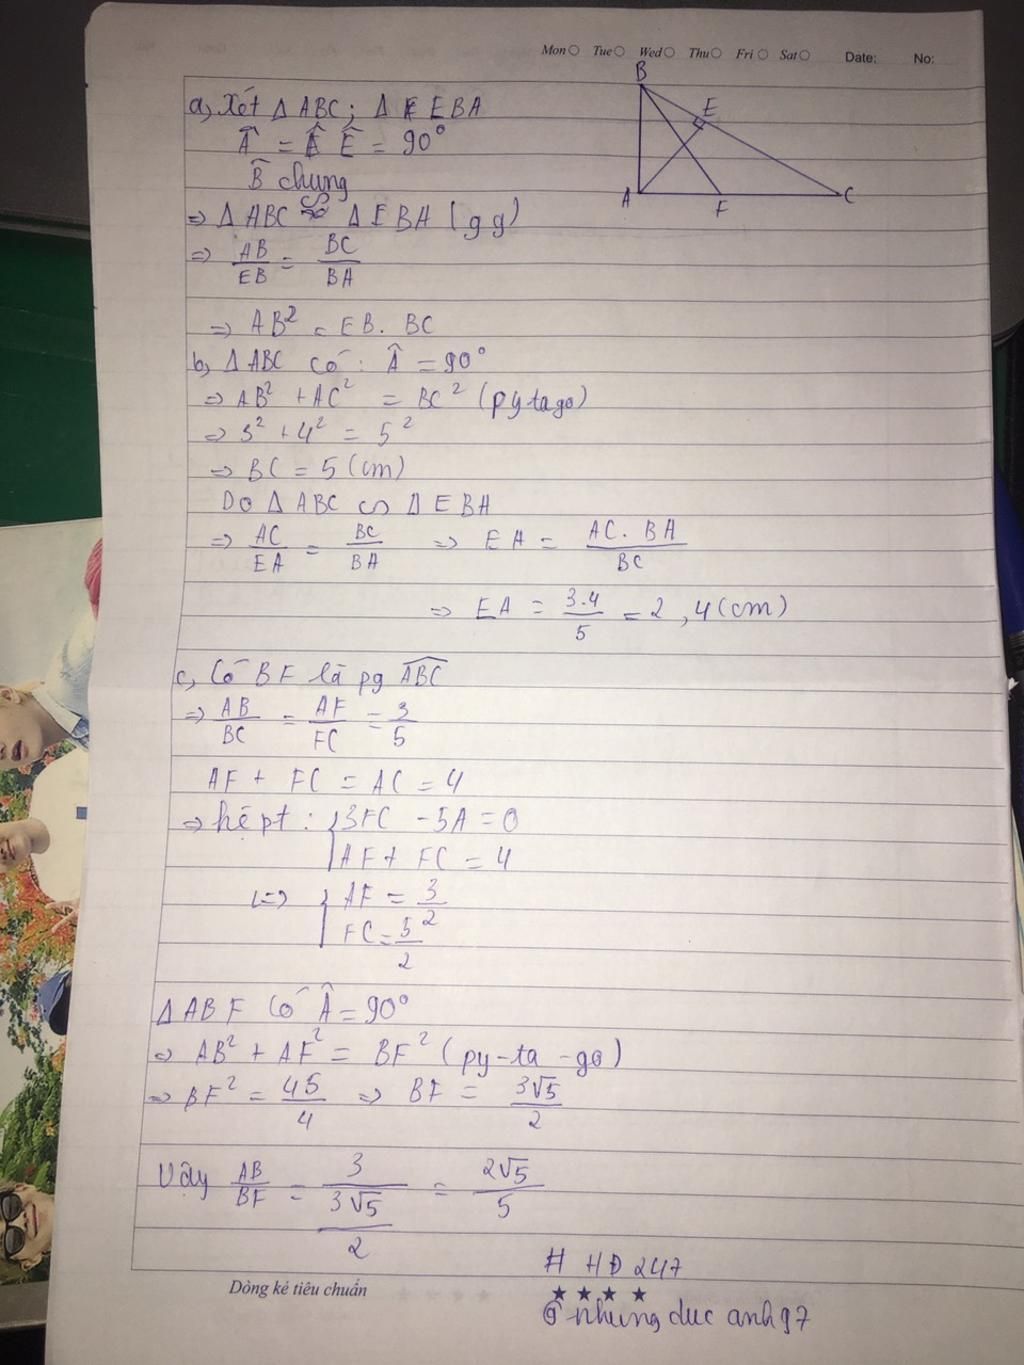 Mon Tue Wed Thu Fri Sat Date: No:
B
E
A F C
a, Xét Δ ABC; Δ EBA
Â = Ê = 90°
B̂ chung
=> Δ ABC ∽ Δ EBA (g g)
=> AB/EB = BC/BA
=> AB² = EB. BC
b, Δ ABC có: Â = 90°
=> AB² + AC² = BC² (pytago)
=> 3² + 4² = 5²
=> BC = 5 (cm)
Do Δ ABC ∽ Δ EBA
=> AC/EA = BC/BA => EA = AC. BA/BC
=> EA = 3.4/5 = 2,4 (cm)
c, Có BF là pg ABC
=> AB/BC = AF/FC = 3/5
AF + FC = AC = 4
=> hệ pt: { 3FC - 5A = 0
AF + FC = 4
<=> { AF = 3/2
FC = 5/2
Δ ABF có Â = 90°
=> AB² + AF² = BF² (py-ta-go)
=> BF² = 45/4 => BF = 3√5/2
Vậy AB/BF = 3/(3√5/2) = 2√5/5
# HĐ 247
Dòng kẻ tiêu chuẩn ★ ★ ★ ★
@ nhung duc anh 97